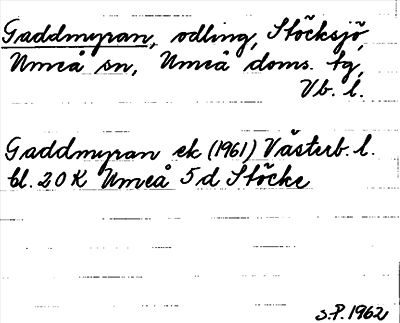 Gaddmyran, odling, Stöcksjö,
Umeå sn, Umeå doms. tg,
Vb. l.
Gaddmyran ek (1961) Västerb. l.
bl. 20 K Umeå 5 d Stöcke
S.P. 1962